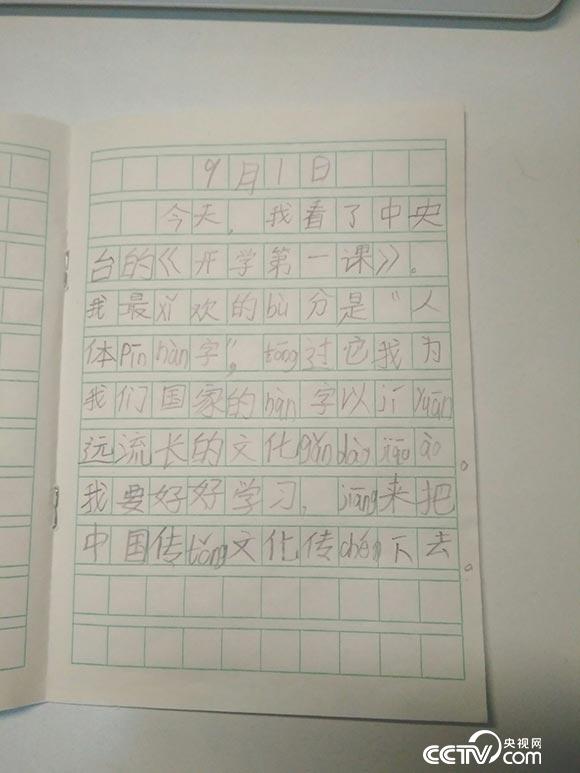 9月1日
今天,我看了中央
台的《开学第一课》。
我最xǐ欢的bù分是“人
体Pīn hàn字”。tōng过它我为
我们国家的hàn字以jī yuān
远流长的文化gǎn dào jiāo ào。
我要好好学习,jiāng来把
中国传tǒng文化传chén下去。
CCTV.com 央视网